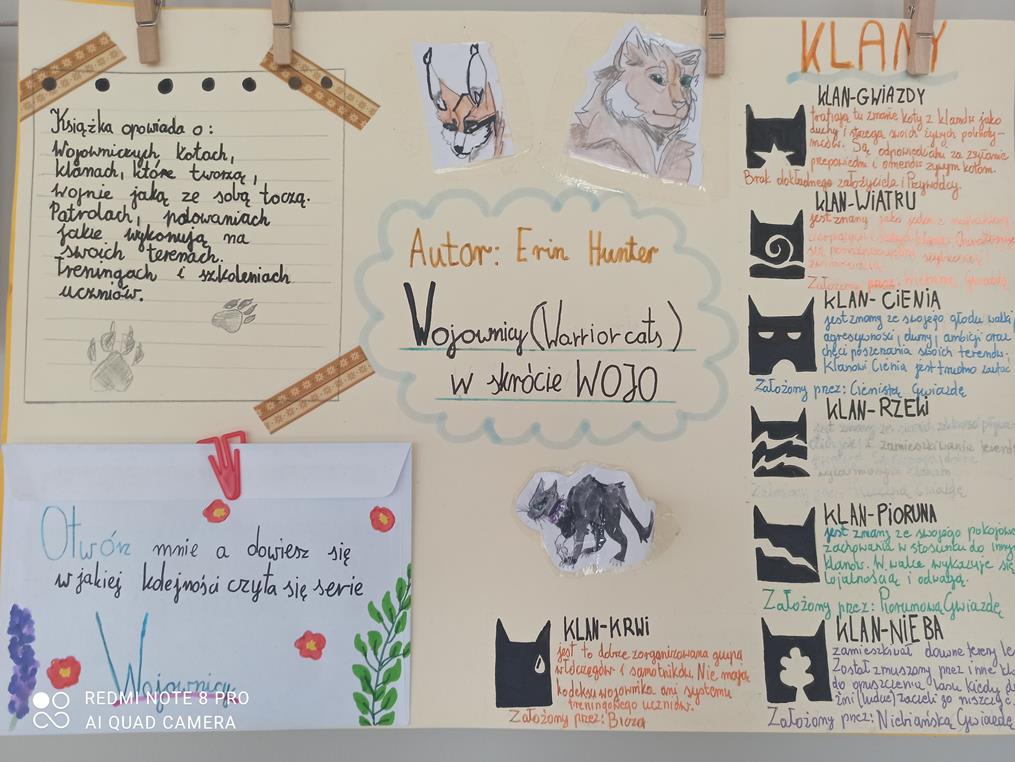 Książka opowiada o:
Wojowniczych kotach,
klanach, które tworzą,
wojnie jaką ze sobą toczą.
Patrolach, polowaniach
jakie wykonują na
swoich terenach.
Treningach i szkoleniach
uczniów.
Otwórz mnie a dowiesz się
w jakiej kolejności czyta się serie
Wojownicy
REDMI NOTE 8 PRO
AI QUAD CAMERA
Autor: Erin Hunter
Wojownicy (Warrior cats)
w skrócie WOJO
KLAN-KRWI
jest to dobrze zorganizowana grupa
włóczęgów i samotników. Nie mają
kodeksu wojownika ani systemu
treningowego uczniów.
Założony przez: Bicza
KLANY
KLAN-GWIAZDY
trafiają tu zmarłe koty z klanów jako
duchy i strzegą swoich żywych pobraty-
mców. Są odpowiedzialni za zsyłanie
przepowiedni i omenów żywym kotom.
Brak dokładnego założyciela i Przywódcy.
KLAN-WIATRU
jest znany jako jeden z najbardziej
Założony przez: Wietrzną Gwiazdę
KLAN-CIENIA
jest znany ze swojego głodu walki,
agresywności, dumy, ambicji oraz
chęci poszerzania swoich terenów.
Klanowi Cienia jest trudno zaufać
Założony przez: Cienistą Gwiazdę
KLAN-RZEKI
jest znany ze swoich zdolność
i zamieszkiwania
Założony przez: Rzeczną Gwiazdę
KLAN-PIORUNA
jest znany ze swojego pokojowe
zachowania w stosunku do innyc
klanów. W walce wykazuje się
lojalnością i odwagą.
Założony przez: Piorunową Gwiazdę
KLAN-NIEBA
zamieszkiwał dawne tereny le
Został zmuszony przez inne kla
do opuszczenia lasu kiedy d
żni (ludzie) zaczęli go niszczyć.
Założony przez: Niebiańską Gwiazdę